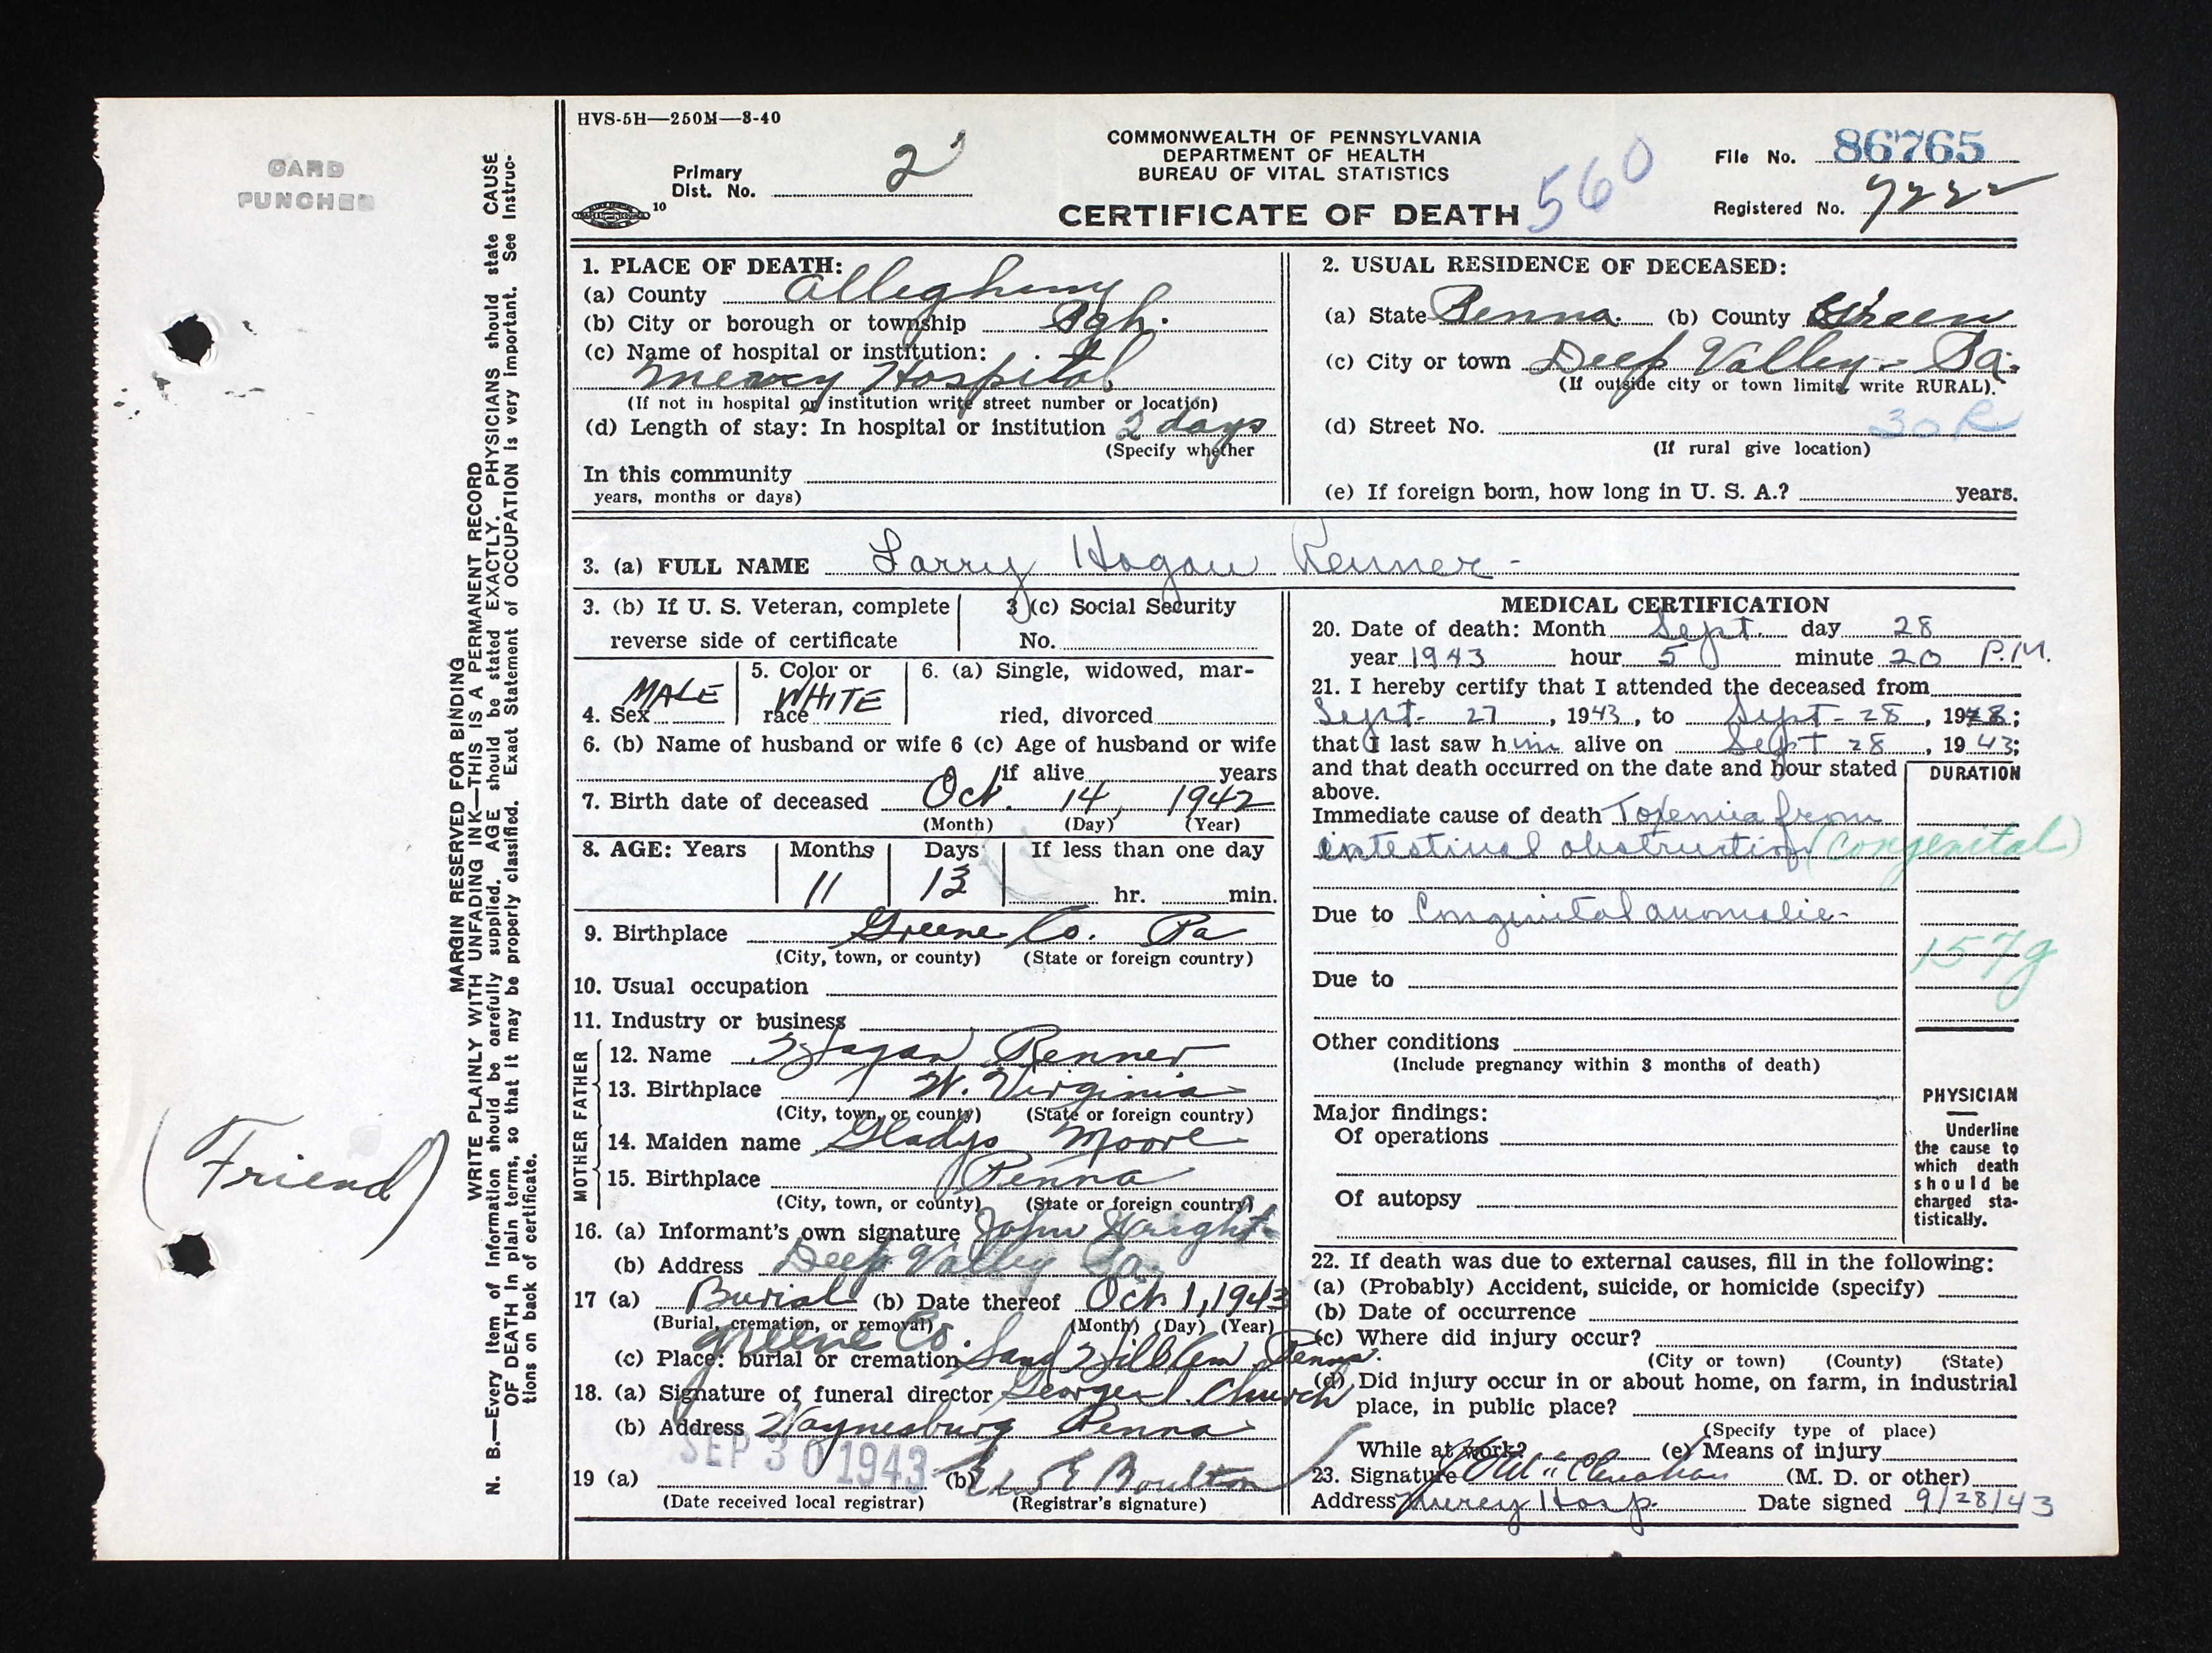 HVS-5H—250M—8-40
CARD
PUNCHED
COMMONWEALTH OF PENNSYLVANIA
DEPARTMENT OF HEALTH
BUREAU OF VITAL STATISTICS
CERTIFICATE OF DEATH
560
Primary
Dist. No. 2
10
File No. 86765
Registered No. 7222
MARGIN RESERVED FOR BINDING
WRITE PLAINLY WITH UNFADING INK—THIS IS A PERMANENT RECORD
N. B.—Every item of information should be carefully supplied. AGE should be stated EXACTLY. PHYSICIANS should state CAUSE
OF DEATH in plain terms, so that it may be properly classified. Exact Statement of OCCUPATION is very important. See Instruc-
tions on back of certificate.
(Friend)
1. PLACE OF DEATH:
(a) County Allegheny
(b) City or borough or township Pgh.
(c) Name of hospital or institution:
Mercy Hospital
(If not in hospital or institution write street number or location)
(d) Length of stay: In hospital or institution 2 days
(Specify whether
In this community
years, months or days)
2. USUAL RESIDENCE OF DECEASED:
(a) State Penna. (b) County Green
(c) City or town Deep Valley - Pa.
(If outside city or town limits, write RURAL)
(d) Street No. 30R
(If rural give location)
(e) If foreign born, how long in U. S. A.? years.
3. (a) FULL NAME Larry Hogan Renner -
3. (b) If U. S. Veteran, complete
reverse side of certificate
3 (c) Social Security
No.
4. Sex MALE
5. Color or
race WHITE
6. (a) Single, widowed, mar-
ried, divorced
6. (b) Name of husband or wife 6 (c) Age of husband or wife
if alive years
7. Birth date of deceased Oct. 14, 1942
(Month) (Day) (Year)
8. AGE: Years Months Days If less than one day
11 13 hr. min.
9. Birthplace Greene Co. Pa
(City, town, or county) (State or foreign country)
10. Usual occupation
11. Industry or business
FATHER
12. Name Hagan Renner
13. Birthplace W. Virginia
(City, town, or county) (State or foreign country)
MOTHER
14. Maiden name Gladys Moore
15. Birthplace Penna
(City, town, or county) (State or foreign country)
16. (a) Informant's own signature John Wright
(b) Address Deep Valley Pa.
17 (a) Burial (b) Date thereof Oct 1, 1943
(Burial, cremation, or removal) (Month) (Day) (Year)
Greene Co.
(c) Place: burial or cremation Sand Hill Cem Penna.
18. (a) Signature of funeral director George L. Church
(b) Address Waynesburg Penna
SEP 30 1943
19 (a) (b) E Boulton
(Date received local registrar) (Registrar's signature)
MEDICAL CERTIFICATION
20. Date of death: Month Sept. day 28
year 1943 hour 5 minute 20 P.M.
21. I hereby certify that I attended the deceased from
Sept. 27, 1943, to Sept - 28, 1948;
that I last saw him alive on Sept 28, 1943;
and that death occurred on the date and hour stated
above.
DURATION
Immediate cause of death Toxemia from
intestinal obstruction (Congenital)
Due to Congenital anomalie-
157g
Due to
Other conditions
(Include pregnancy within 3 months of death)
Major findings:
Of operations
Of autopsy
PHYSICIAN
Underline
the cause to
which death
should be
charged sta-
tistically.
22. If death was due to external causes, fill in the following:
(a) (Probably) Accident, suicide, or homicide (specify)
(b) Date of occurrence
(c) Where did injury occur?
(City or town) (County) (State)
(d) Did injury occur in or about home, on farm, in industrial
place, in public place?
(Specify type of place)
While at work? (e) Means of injury
23. Signature (M. D. or other)
Address Mercy Hosp. Date signed 9/28/43